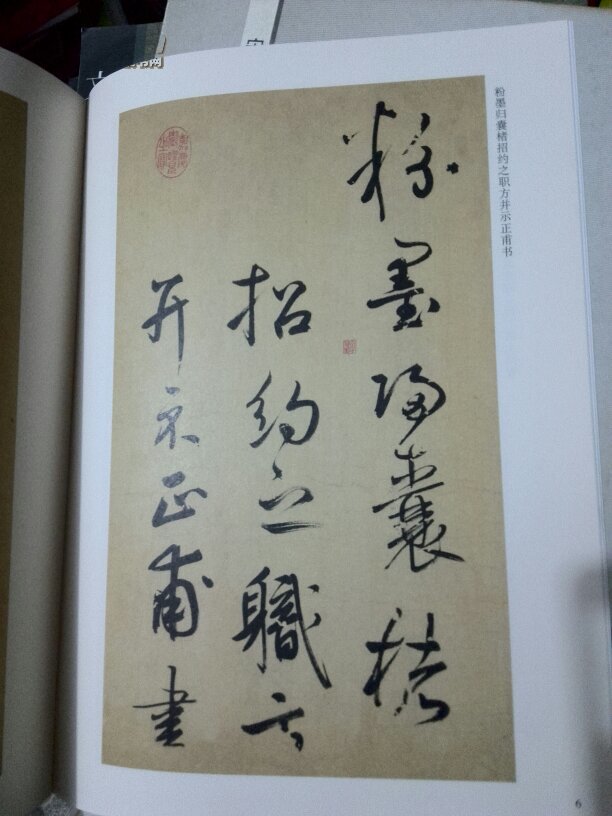 粉墨归囊楮招约之职方并示正甫书
粉墨歸囊楮
招約之職方
并示正甫書
6